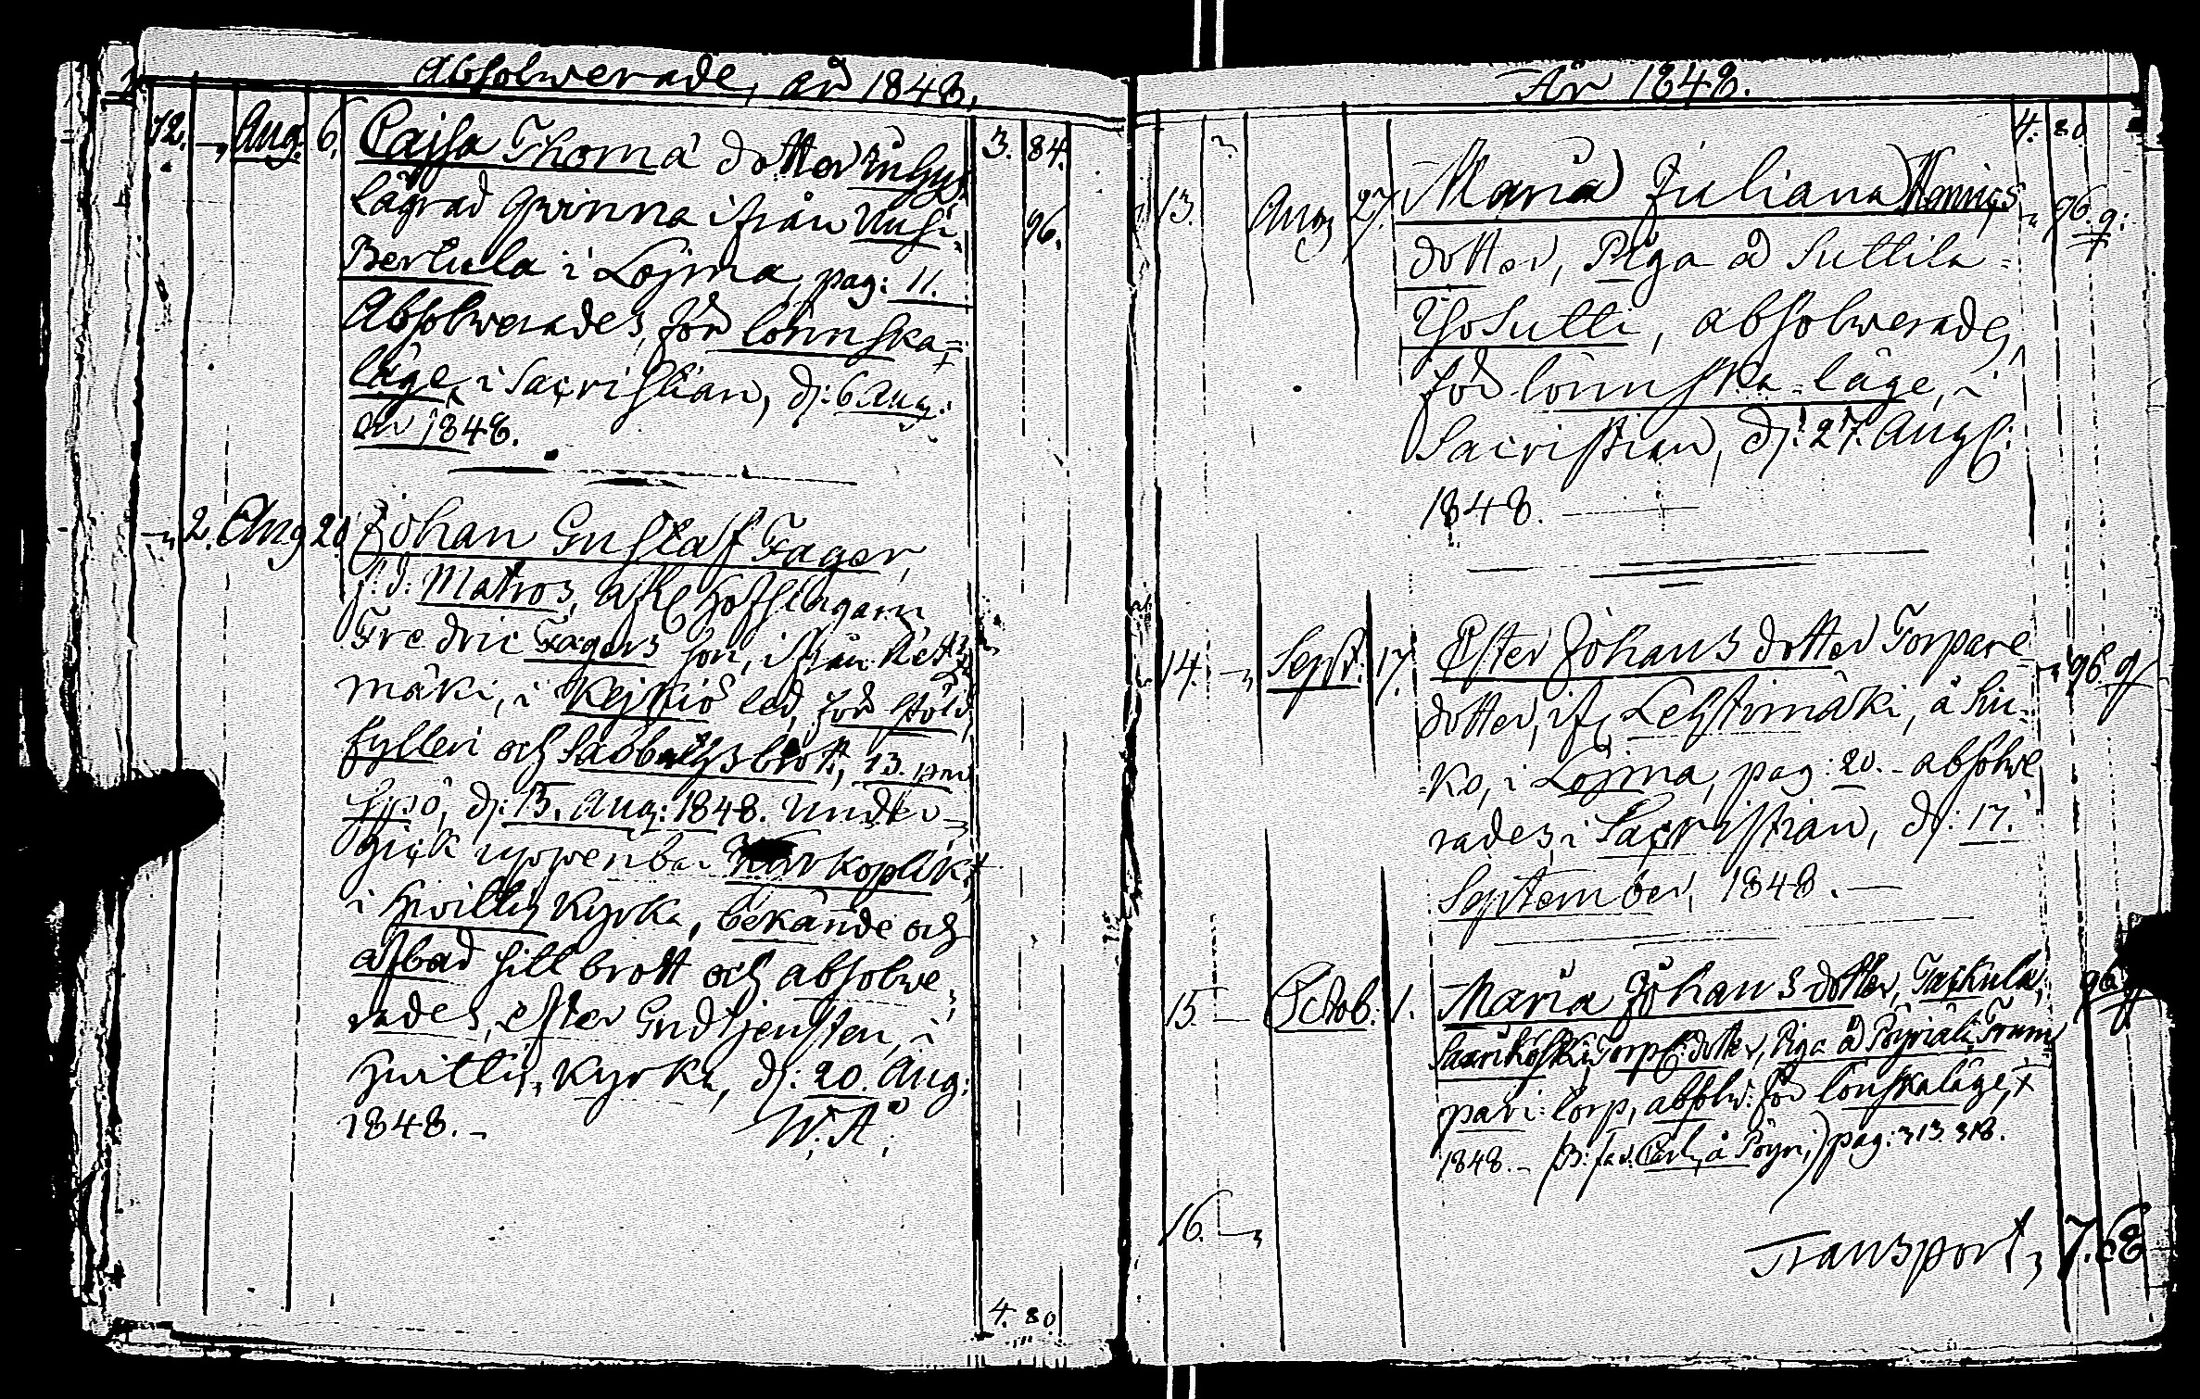 Absolwerade, år 1848.
12. Aug. 6. Cajsa Thomä dotter 3. 84.
lägrad qwinna ifrån Uusi- 96.
Bertula i Loima, pag: 11.
Absolwerades, för lönnska-
läge, i Sacristian, d: 6 Aug:
år 1848.
2. Aug 20 Johan Gustaf Fager,
f.d. Matros, Hofslagarn
Fredric Fagers son, ifrån
mäki, i Kejkiö led, för stöld,
fylleri och Sabbathsbrott, 13. par
Spö, d: 15. Aug: 1848. under-
gick uppenbar Kyrkoplikt
i Hvittis Kyrka, bekände och
afbad sitt brott och absolwe-
rades, efter Gudstjensten, i
Hvittis Kyrka, d: 20. Aug:
1848. W. A.
4. 80.
År 1848.
4. 80.
13. Aug 27. Maria Juliana 96. 9:
dotter, Piga å Suttila-
Isosutti, absolwerades,
för lönnska-läge, i
Sacristian, d: 27. Aug:
1848.
14. Sept. 17. Ester Johans dotter Torpare- 96. 9
dotter, ifr Lehtimäki, å
ko, i Loima, pag: 20. absolwe
rades, i Sacristian, d: 17.
September, 1848.
15 Octob. 1. Maria Johans dotter, 96
Torp: dotter, Piga å
pari torp, absolw: för lönskaläge,
1848. pag: 313. 318.
16.
Transport, 7. 68